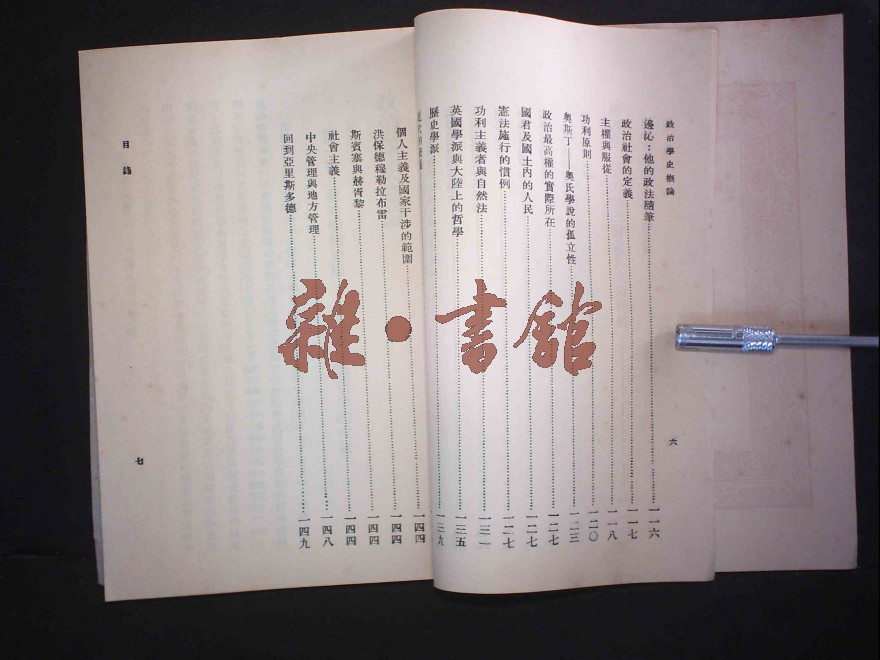 政治學史概論
邊沁：他的政法隨筆 一一六
政治社會的定義 一一七
主權與服從 一一八
功利原則 一二〇
奧斯丁——奧氏學說的孤立性 一二三
政治最高權的實際所在 一二七
國君及國土內的人民 一二七
憲法施行的慣例 一二七
功利主義者與自然法 一三一
英國學派與大陸上的哲學 一三五
歷史學派 一三九
一四四
個人主義及國家干涉的範圍 一四四
洪保德穆勒拉布雷 一四四
斯賓塞與赫胥黎 一四四
社會主義 一四八
中央管理與地方管理 一四八
回到亞里斯多德 一四九
六
目錄
七
雜·書館